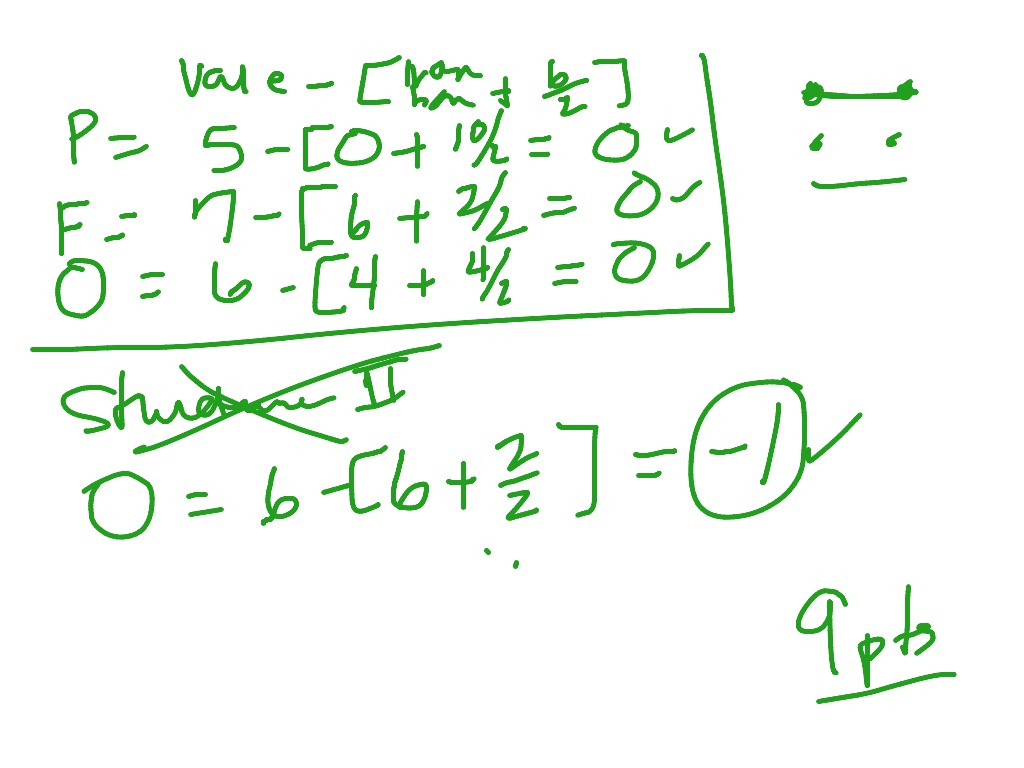 Vale - [non bon + b/2]
P = 5 - [0 + 10/2 = 0 ✓
F = 7 - [6 + 2/2 = 0 ✓
O = 6 - [4 + 4/2 = 0 ✓
II
O = 6 - [6 + 2/2] = -1 ✓
9 pts